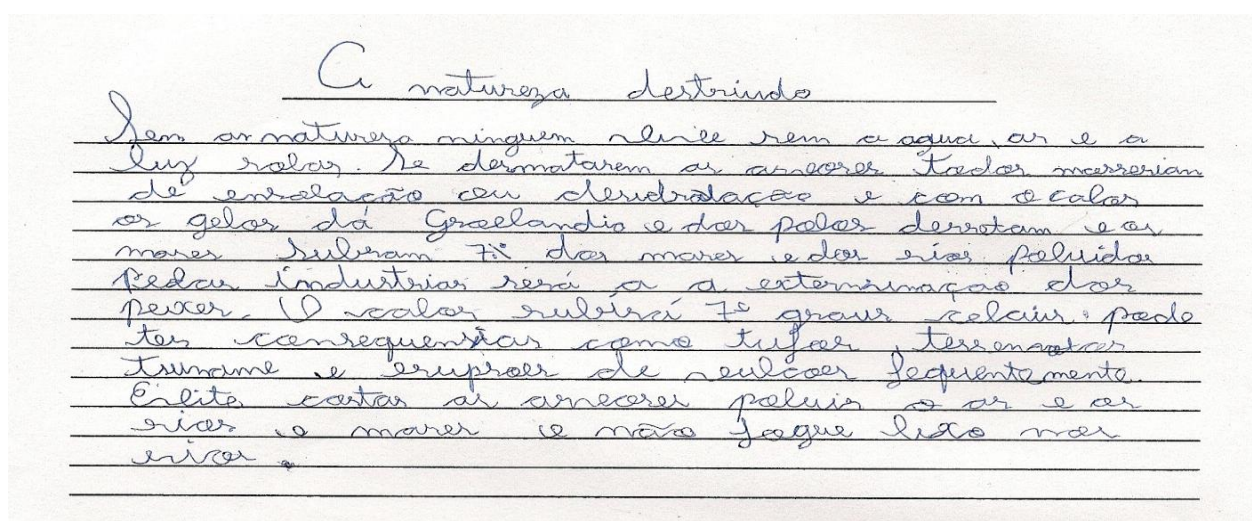 A natureza destriundo
Sem as natureza ninguem vive sem a agua, ar e a
luz solar. Se desmatarem as arvores todos morrerian
de ensolação ou desidratação e com o calor
os gelos dá Groelandia e dos polos derrotam e os
mares subiram 7% dos mares e dos rios poluidos
pedas industrias será a a exterminaçao dos
peixer. O calor subirá 7º graus celcius, pode
ter consequensias como tufos, terremotos
tsuname e erupsoes de vulcoes fequentemente.
Evite cortar as arvores poluir o ar e os
rios e mares e não jogue lixo nos
rios.